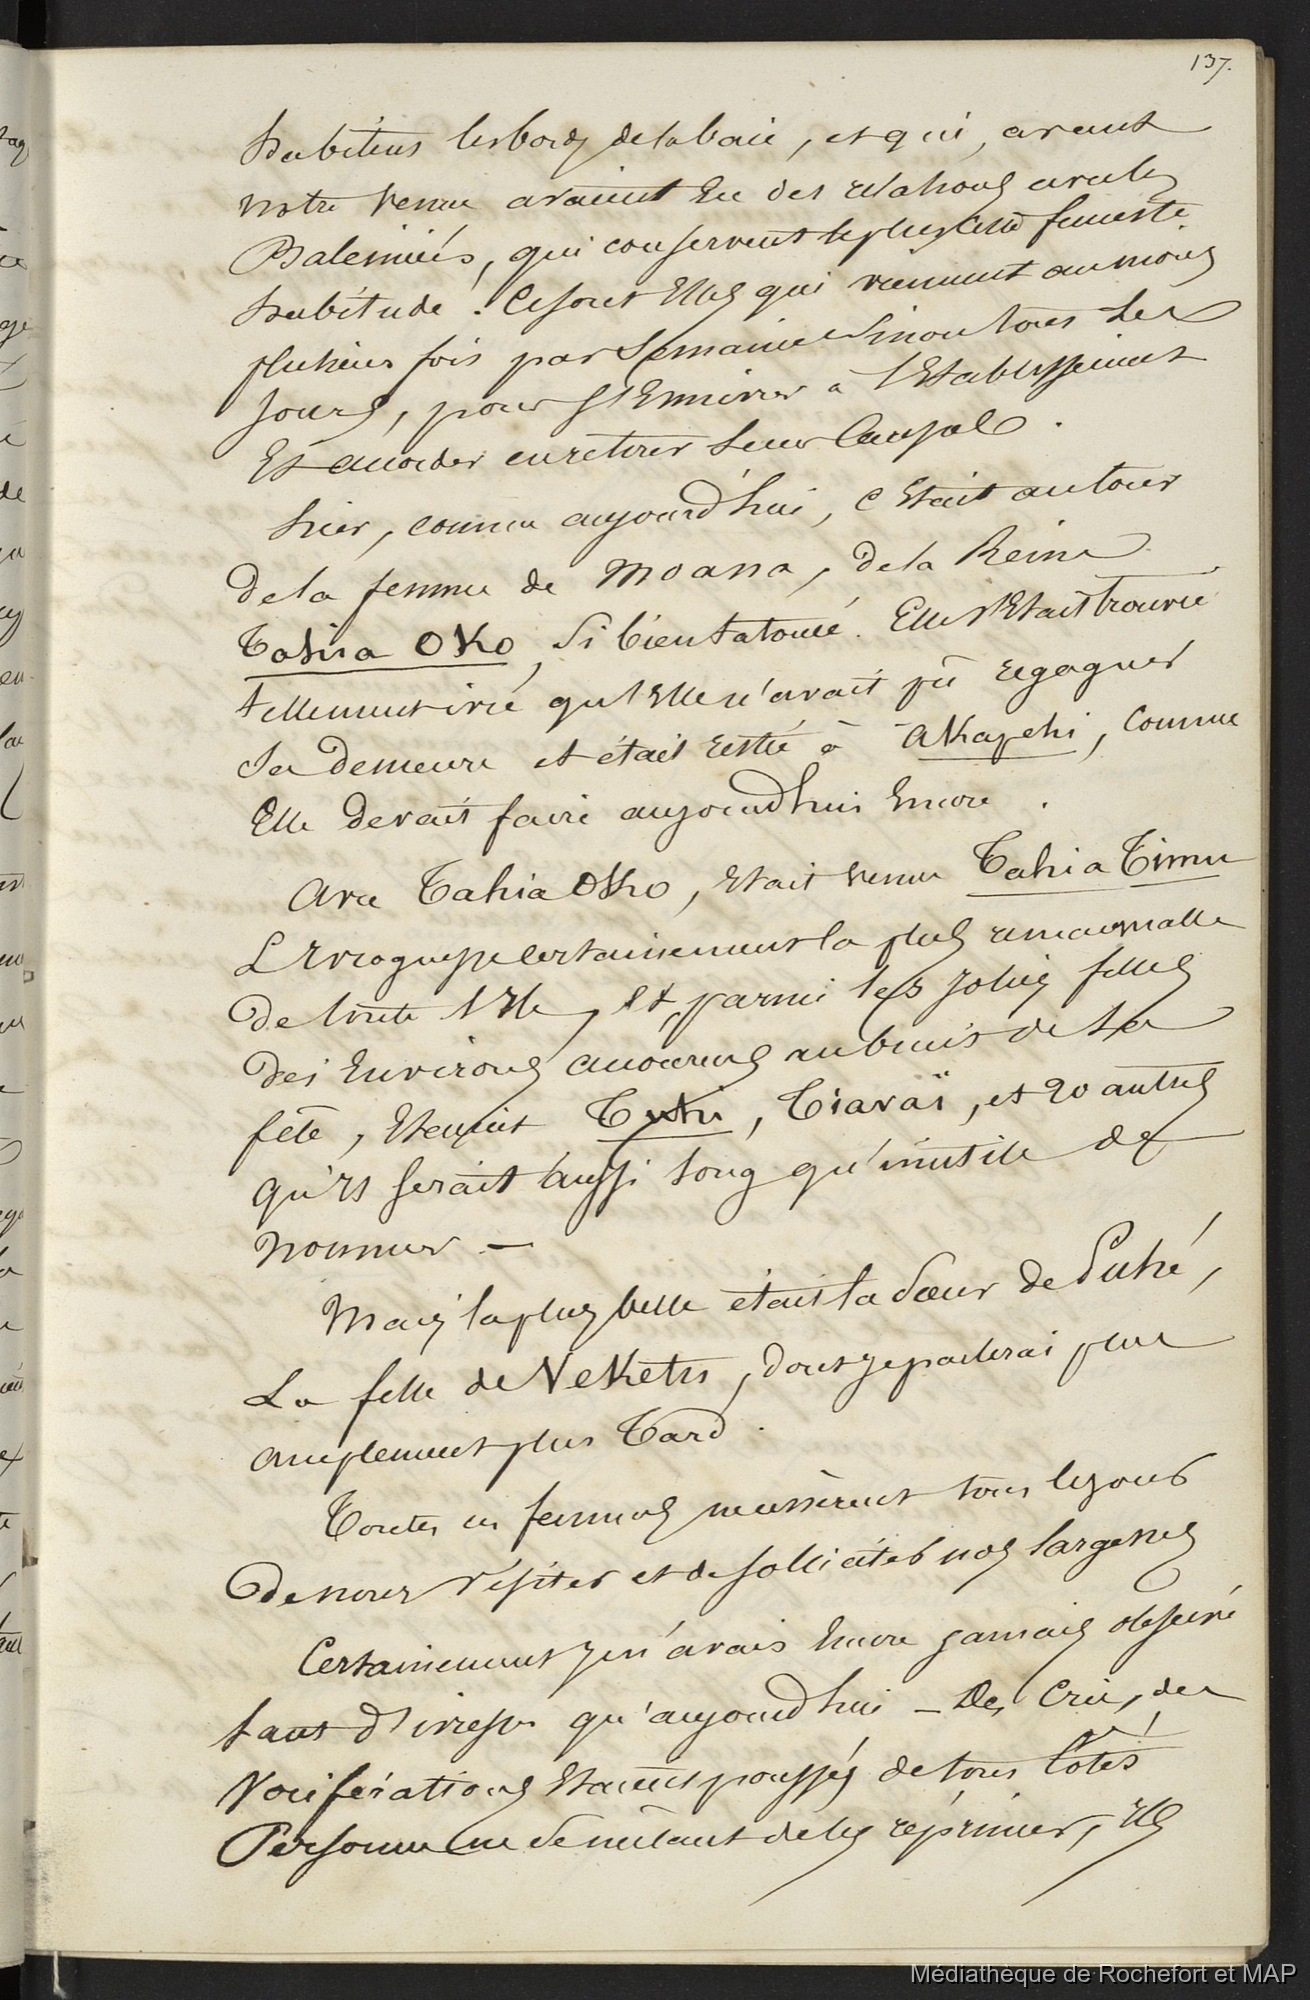 137.
habitens les bords de la baie, et qui, avant
notre venue avaient Eu des relations avec les
Baleiniers, qui conservent le plus cette funeste
habitude. Ce sont Elles qui viennent au moins
plusieurs fois par Semaine Sinon tous les
jours, pour s'Ennivrer à l'Etablissement
Et au order en retirer leur
hier, comme aujourd'hui, c'Etait autour
de la femme de Moana, de la Reine
Tahia Oko, Si bien tatouée. Elle s'Etait trouvée
tellement ivre qu'Elle n'avait pû regagner
sa demeure et était restée à Akapehi, comme
Elle devait faire aujourd'hui Encore.
Avec Tahia Oko, Etait venue Tahia Timu
L'Ivrognesse certainement la plus remarquable
de toute l'Ile, et, parmi les jolies filles
des Environs accourues au bruit de la
fête, Etaient Tuhi, Tiaraï, et 20 autres
qu'Il serait aussi long qu'inutile de
nommer —
Mais la plus belle était la Sœur de Puhé,
La fille de Veketu, dont je parlerai plus
amplement plus Tard.
Toutes ces femmes ne cessèrent tous les jours
de nous visiter et de solliciter nos largesses
Certainement je n'avais Encore jamais observé
tant d'ivresse qu'aujourd'hui — Des Cris, des
Vociférations Etaient poussés de tous Cotés
Personne ne se mêlant de les réprimer, Ils
Médiathèque de Rochefort et MAP